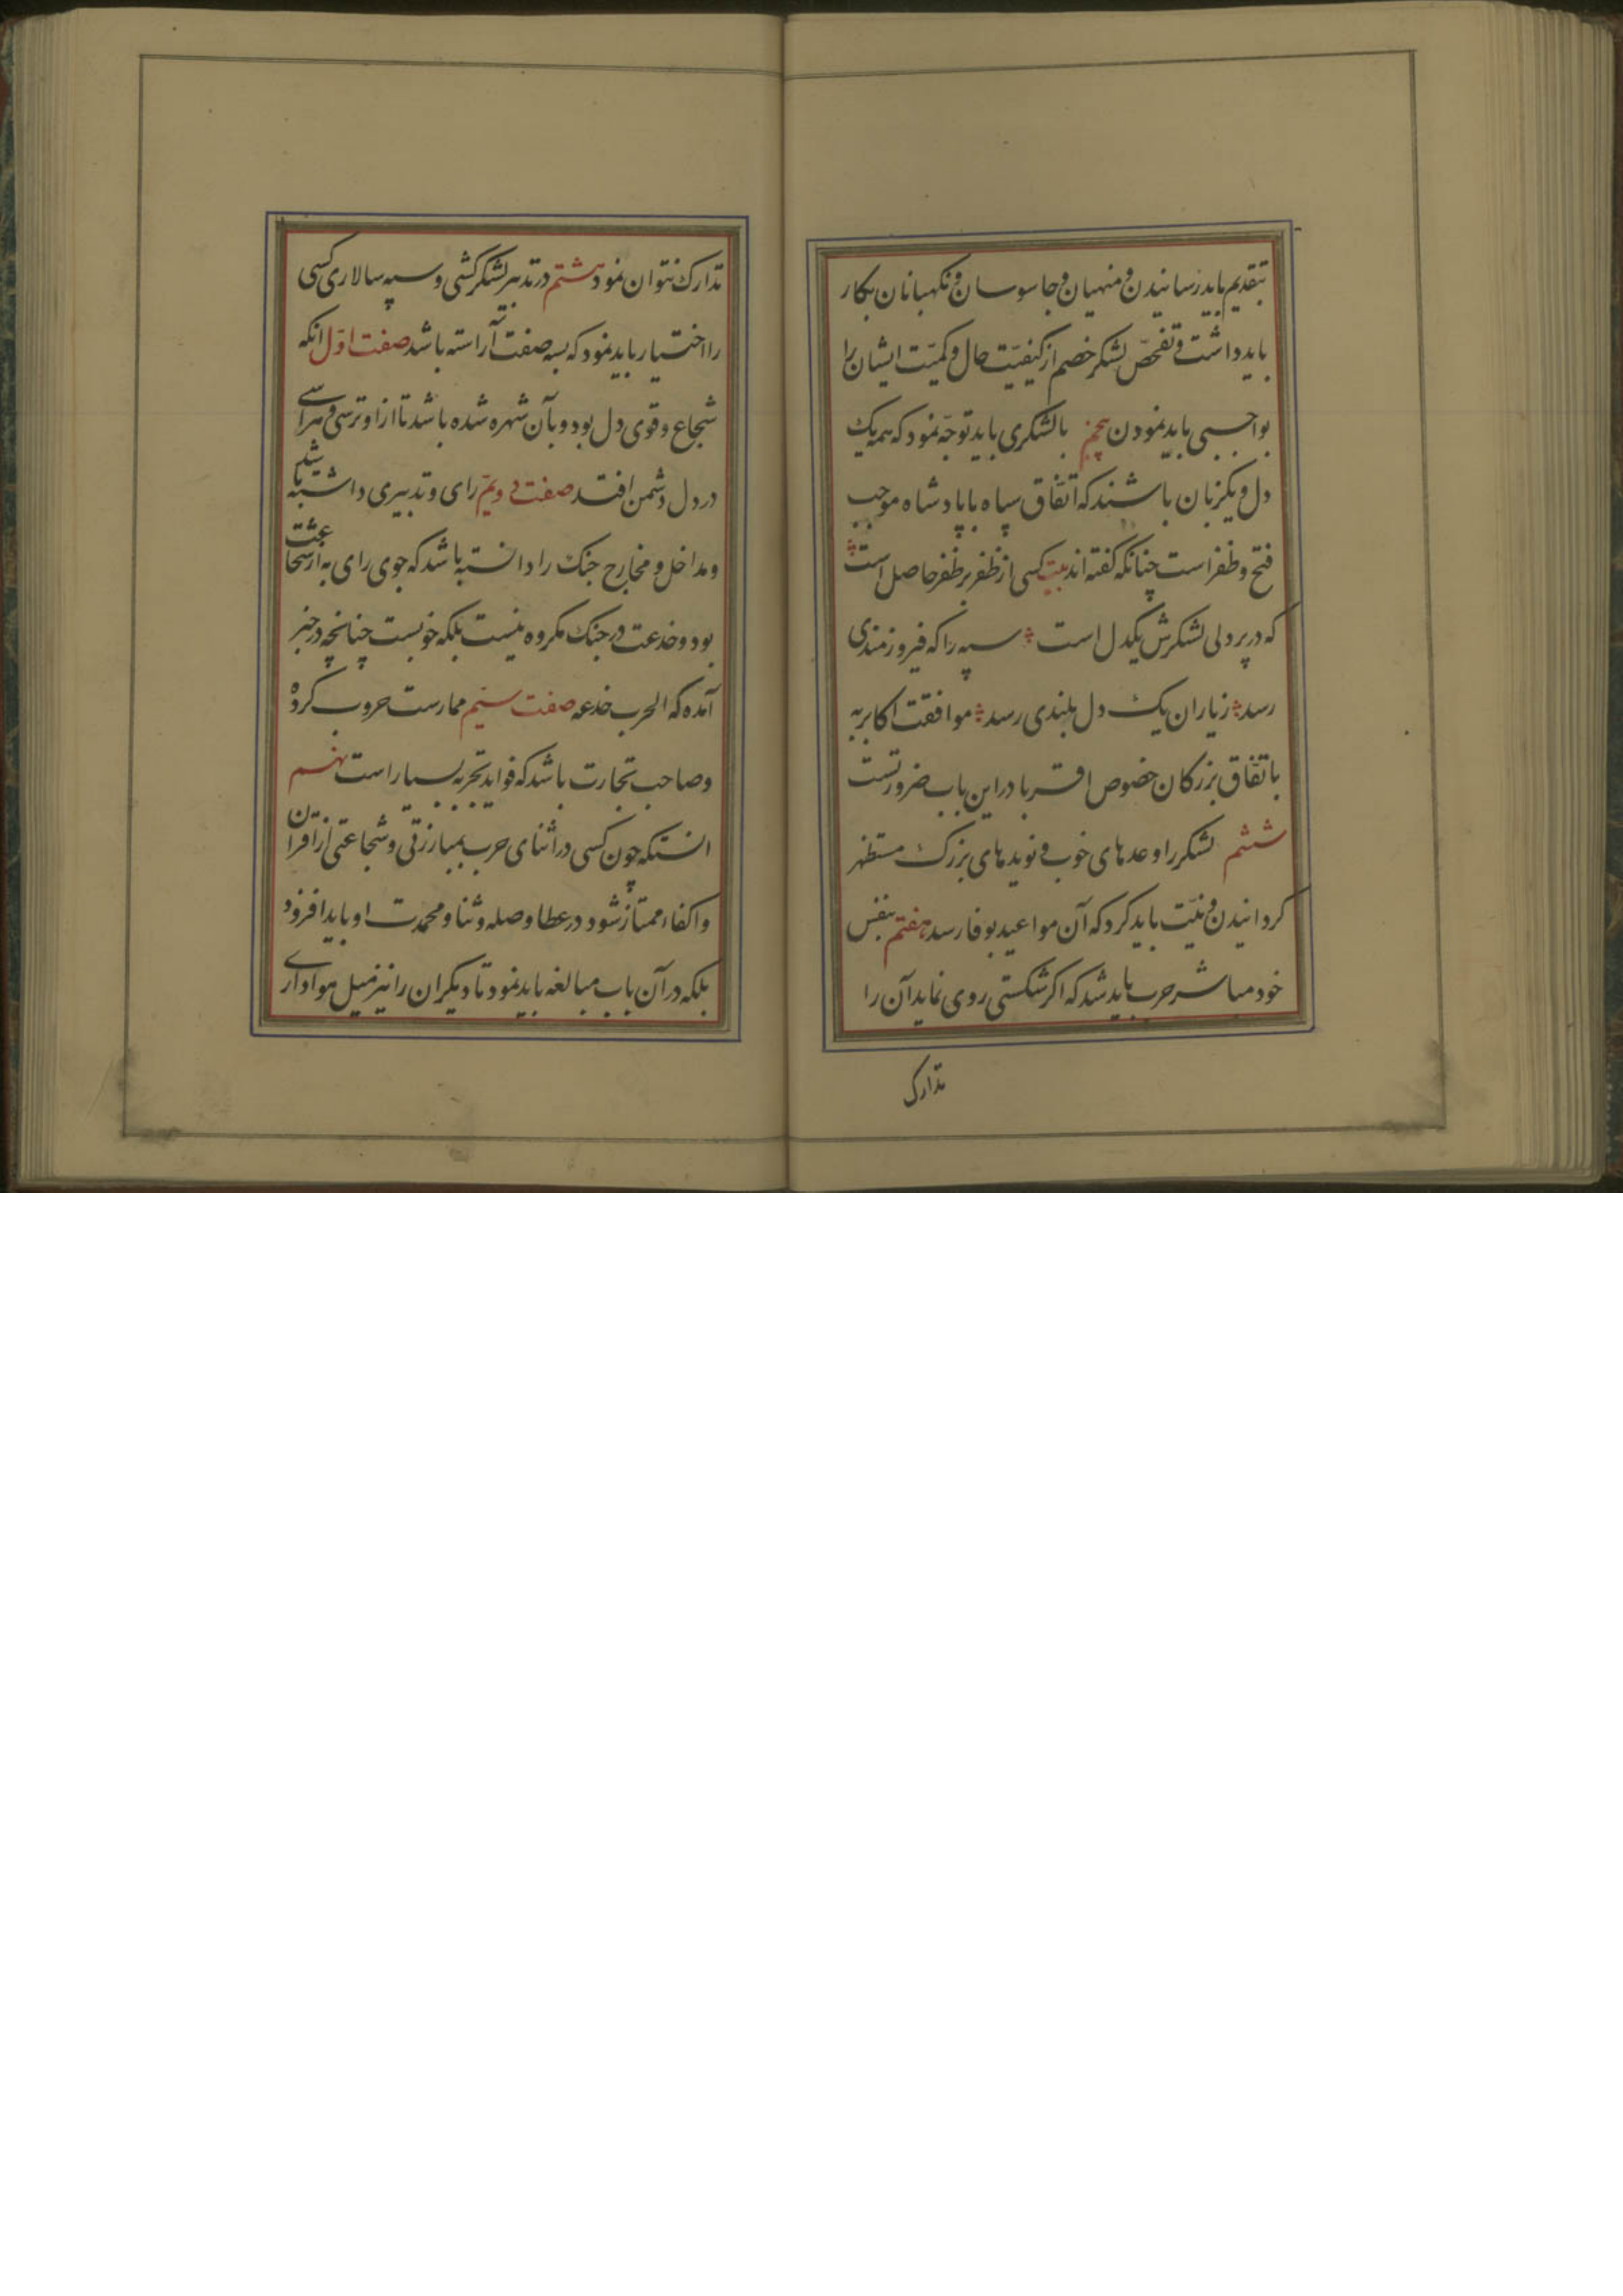 بتقدیم باید رسانیدن و منهیان و جاسوسان و نکهبانان بکار
باید داشت و تفحص لشکر خصم از کیفیّت حال و کمیّت ایشان را
بواجبی باید نمودن پنجم بالشکری باید توجّه نمود که همه یک
دل و یکزبان باشند که اتّفاق سپاه با پادشاه موجب
فتح و ظفر است چنانکه کفته اند بیت کسی از ظفر بر ظفر حاصل است
که در پردلی لشکرش یکدل است سپه را که فیروزمندی
رسد زیاران یک دل بلندی رسد موافقت اکابر به
باتّفاق بزرکان خصوص اقربا در این باب ضرورتست
ششم لشکر را وعدهای خوب و نویدهای بزرک مستظهر
کردانیدن و نیّت باید کرد که آن مواعید بوفا رسد هفتم بنفس
خود مباشر حرب باید شد که اکر شکستی روی نماید آن را
تدارک
تدارک نتوان نمود هشتم در تدبیر لشکرکشی و سپه سالاری کسی
را اختیار باید نمود که بسه صفت آراسته باشد صفت اوّل آنکه
شجاع و قوی دل بود و بآن شهره شده باشد تا از او ترسی و هراسی
در دل دشمن افتد صفت دویّم رای و تدبیری داشته باشد
و مداخل و مخارج جنک را دانسته باشد که جوی رای به از شجاعت
بود و خدعت در جنک مکروه نیست بلکه خوبست چنانچه در خبر
آمده که الحرب خدعه صفت سیم ممارست حروب کرده
و صاحب تجارت باشد که فواید تجربه بسیار است نهم
انستکه چون کسی در اثنای حرب بمبارزتی و شجاعتی از اقران
و اکفاء ممتاز شود در عطا و صله و ثنا و محمدت او باید افزود
بلکه در آن باب مبالغه باید نمود تا دیکران را نیز میل هواداری